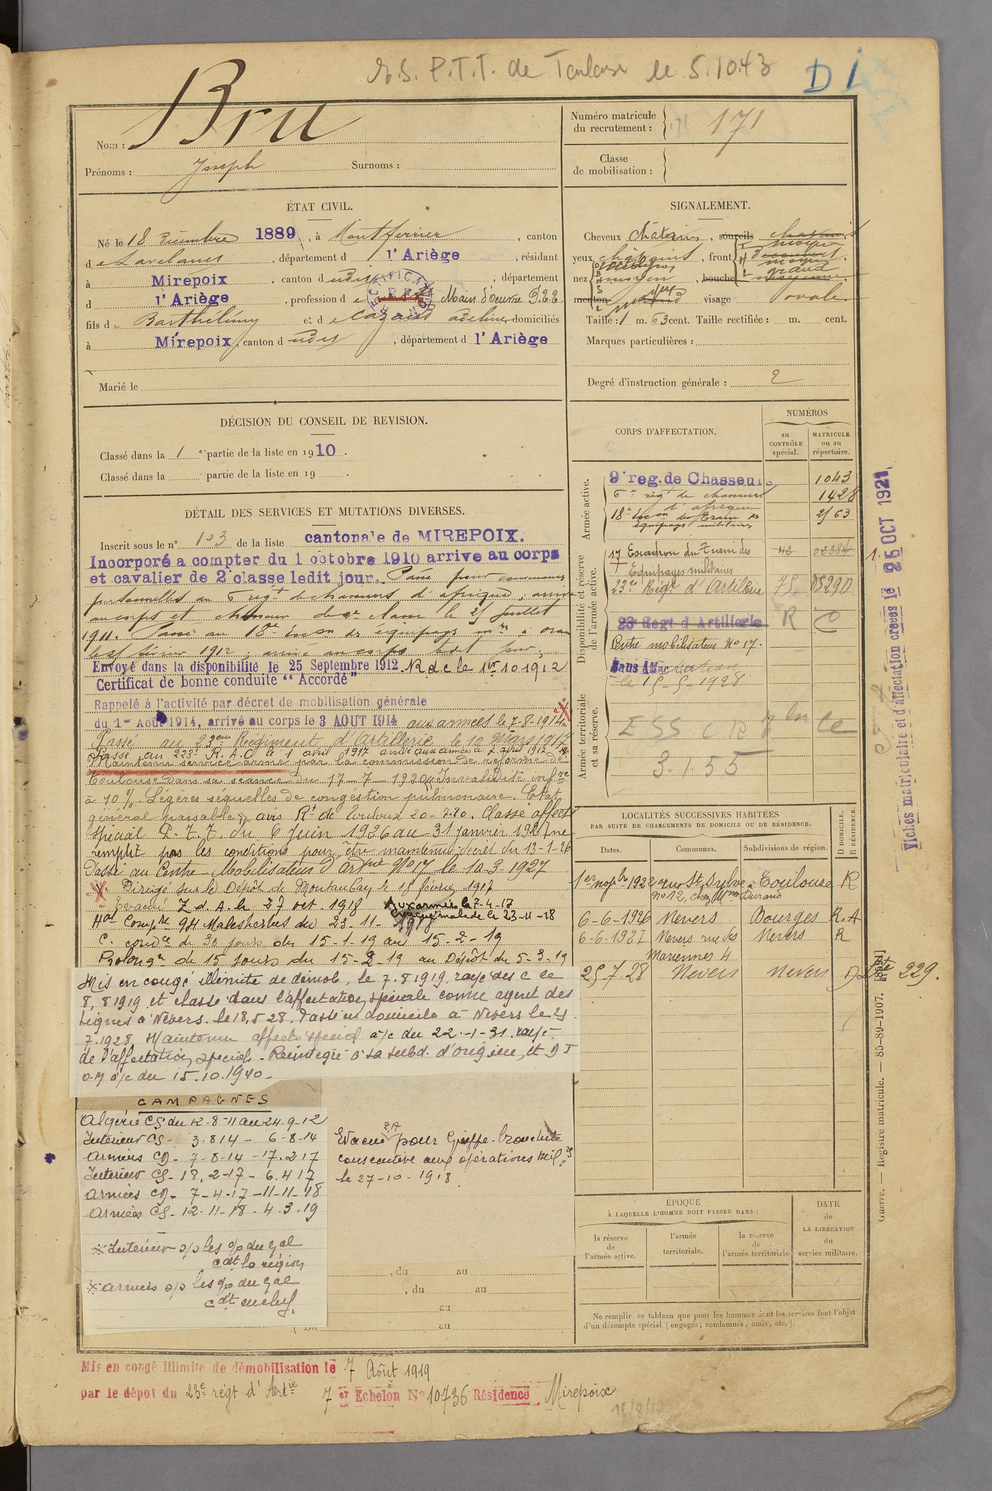 P.T.T. de Toulouse le 5.10.43
D I
Nom : Bru
Prénoms : Joseph Surnoms :
Numéro matricule du recrutement : 171
Classe de mobilisation :
ÉTAT CIVIL.
Né le 18 décembre 1889, à Montferrier, canton
de Lavelanet, département d l'Ariège, résidant
à Mirepoix, canton d udit, département
d l'Ariège, profession d Main d'oeuvre P.T.T.
fils de Barthélémy et de Cazaud Adeline domiciliés
à Mirepoix, canton d udit, département d l'Ariège
Marié le
SIGNALEMENT.
Cheveux châtains, sourcils châtains
yeux, front
nez moyen, bouche moyenne
menton, visage ovale.
Taille : 1 m. 63 cent. Taille rectifiée : m. cent.
Marques particulières :
Degré d'instruction générale : 2
DÉCISION DU CONSEIL DE REVISION.
Classé dans la 1e partie de la liste en 1910.
Classé dans la partie de la liste en 19 .
DÉTAIL DES SERVICES ET MUTATIONS DIVERSES.
Inscrit sous le n° 103 de la liste cantonale de MIREPOIX.
Incorporé à compter du 1 octobre 1910 arrivé au corps
et cavalier de 2e classe ledit jour. Passé pour convenances
personnelles au 6 régt de chasseurs d'afrique; arrivé
au corps et chasseur de 2e classe le 25 juillet
1911. Passé au 18e escon des équipages mres à oran
le 25 février 1912; arrivé au corps led. jour.
Envoyé dans la disponibilité le 25 Septembre 1912. R d c le 1er 10 1912
Certificat de bonne conduite "Accordé"
Rappelé à l'activité par décret de mobilisation générale
du 1er Août 1914, arrivé au corps le 3 AOUT 1914 aux armées le 7-8-1914
Passé au 23ème Régiment d'Artillerie le 10 Mars 1917
Passé au 223e R.A.C. le 1 avril 1917
Maintenu service armé par la commission de réforme de
Toulouse dans sa séance du 17-7-1920 Invalidité infre
à 10 %. Légères séquelles de congestion pulmonaire. Etat
général passable; avis Rt de Toulouse 20-7-20. Classé affecté
spécial P.T.T. du 6 juin 1926 au 31 janvier 1927 ne
remplit pas les conditions pour être maintenu Décret du 13-1-26
Passé au Centre Mobilisateur d'Artrie N° 17 le 10-3-1927
Dirigé sur le Dépôt de Montauban le 18 février 1917
Aux armées le 7-4-17
Evacué Z d. A. le 27 oct. 1918 Evacué malade le 23-11-18
Hal Compre 94 Malesherbes du 23-11-1918
C. convce de 30 jours du 15-1-19 au 15-2-19
Prolongon de 15 jours du 15-2-19 au Dépôt du 5-3-19
Mis en congé illimité de démob. le 7.8.1919. rayé des c le
8.8.1919 et classé dans l'affectation spéciale comme agent des
lignes à Nevers. le 18.5.28. Passé en domicile à Nevers le 25
7.1928. Maintenu affecté spécial a/c du 22-1-31. rayé
de l'affectation spécial. Réintégré à sa subd. d'origine, et D I
o.m a/c du 15.10.1940.
CAMPAGNES
Algérie CS du 12-8-11 au 24-9-12
Intérieur CS - 3-8-14 - 6-8-14
Armées CD - 7-8-14 - 17.2.17
Intérieur CS - 18.2-17 - 6.4.17
Armées CD - 7-4-17 - 11-11-18
Armées CS - 12-11-18 - 4.3.19
Intérieur s/s les o/ du Gal
cdt la région
Armées s/s les o/ du Gal
cdt en chef.
Evacué pour Grippe-bronchite
consécutive aux opérations milres
le 27-10-1918.
, du au
, du au
au
Du au
CORPS D'AFFECTATION.
NUMÉROS
AU CONTRÔLE spécial.
MATRICULE ou au répertoire.
Armée active.
9e rég. de Chasseurs 1043
6e régt de chasseurs d'afrique 1428
18e escon du train des équipages militaires 2563
Disponibilité et réserve de l'armée active.
17 Escadron du Train des Équipages militaires
23e Régt d'Artillerie
23e Régt d'Artillerie R C
Centre mobilisateur N° 17.
Sans Affectation
le 15-5-1928
Armée territoriale et sa réserve.
3.1.55
LOCALITÉS SUCCESSIVES HABITÉES
PAR SUITE DE CHANGEMENTS DE DOMICILE OU DE RÉSIDENCE.
Dates. Communes. Subdivisions de région. D DOMICILE. R RÉSIDENCE.
1er novbre 1922 rue St Sylve n°12, chez Mme Durand Toulouse R
6-6-1926 Nevers Bourges R.A
6-6-1927 Nevers rue des Mariennes 4 Nevers R
25-7-28 Nevers Nevers D 229.
ÉPOQUE
À LAQUELLE L'HOMME DOIT PASSER DANS :
la réserve de l'armée active.
l'armée territoriale.
la réserve de l'armée territoriale
DATE de LA LIBÉRATION du service militaire.
Ne remplir ce tableau que pour les hommes dont les services font l'objet
d'un décompte spécial (engagés, condamnés, omis, etc.).
Fiches matriculaire et d'affectation créées le 25 OCT 1921.
Guerre. — Registre matricule. — 85-89-1907.
Mis en congé illimité de démobilisation le 7 Août 1919
par le dépôt du 23e régt d'Artie 7er Echelon N° 10736 Résidence Mirepoix